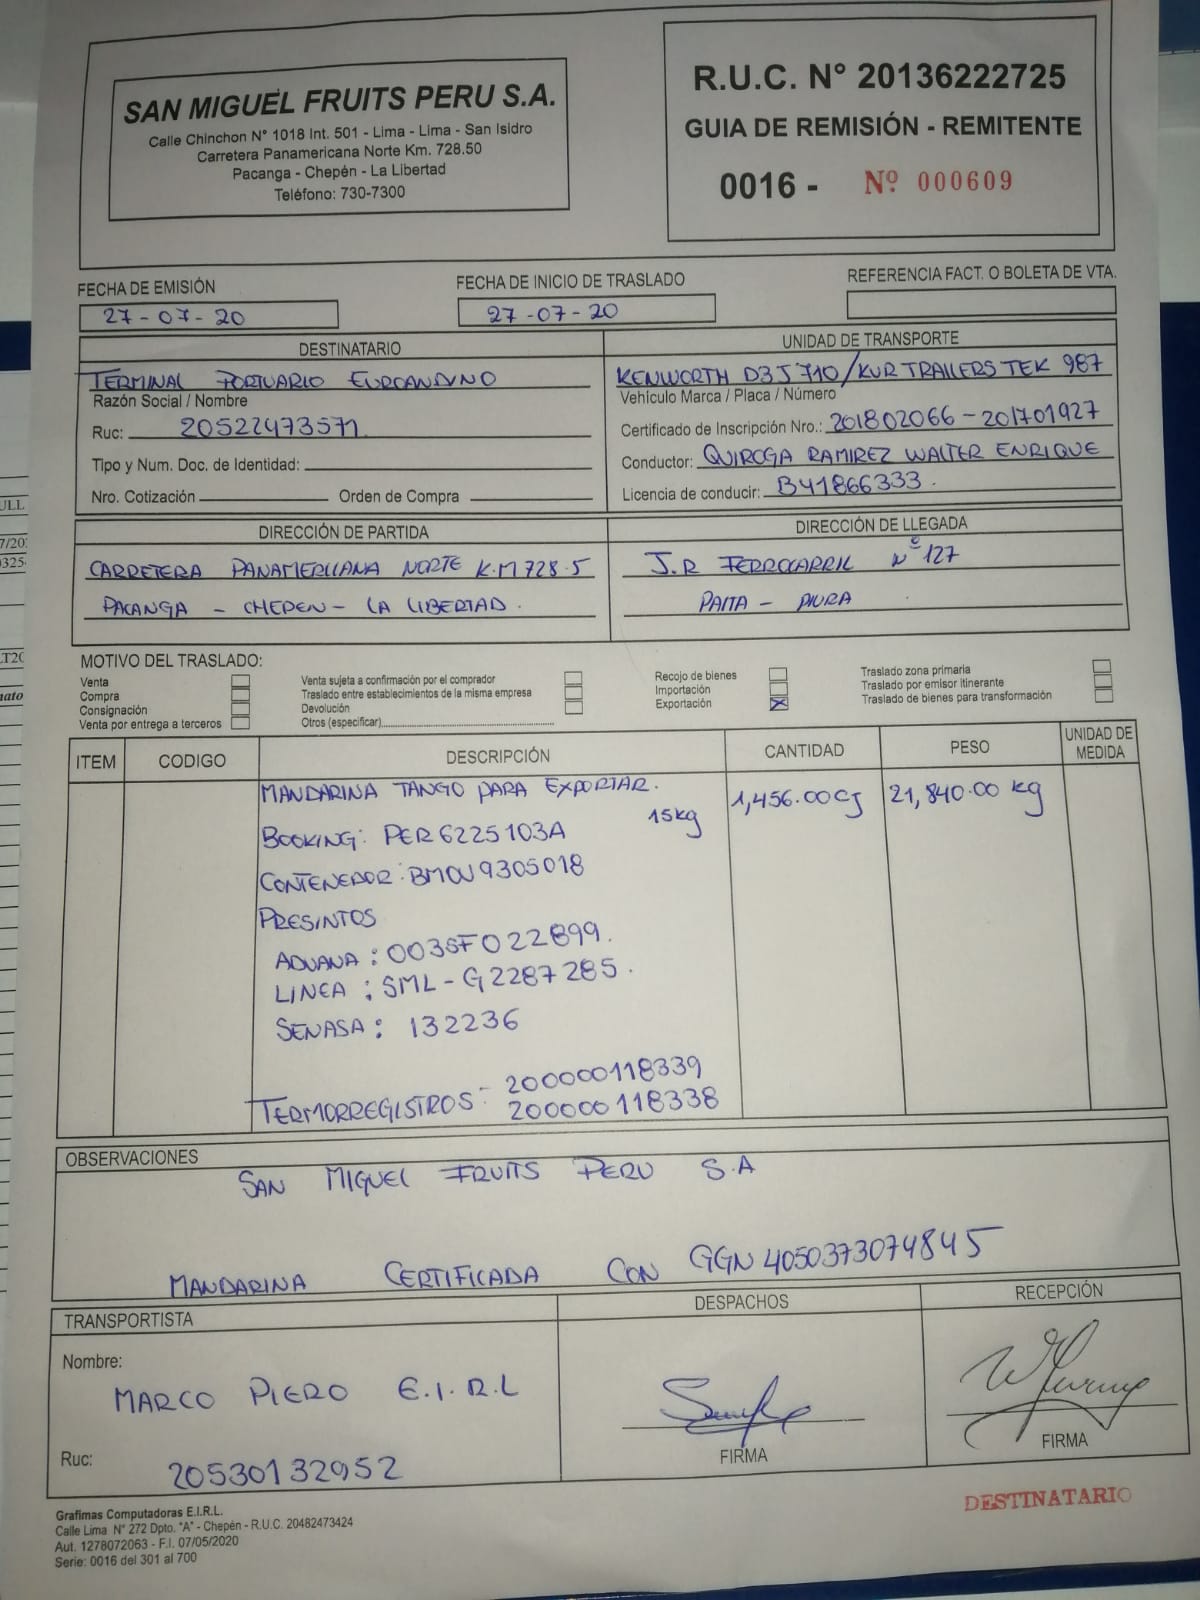 SAN MIGUEL FRUITS PERU S.A.
Calle Chinchon N° 1018 Int. 501 - Lima - Lima - San Isidro
Carretera Panamericana Norte Km. 728.50
Pacanga - Chepén - La Libertad
Teléfono: 730-7300
R.U.C. N° 20136222725
GUIA DE REMISIÓN - REMITENTE
0016 - Nº 000609
FECHA DE EMISIÓN
27-07-20
FECHA DE INICIO DE TRASLADO
27-07-20
REFERENCIA FACT. O BOLETA DE VTA.
DESTINATARIO
TERMINAL PORTUARIO EUROANDINO
Razón Social / Nombre
Ruc: 20522473571
Tipo y Num. Doc. de Identidad:
Nro. Cotización Orden de Compra
UNIDAD DE TRANSPORTE
KENWORTH D3J710/KUR TRAILERS TEK 987
Vehículo Marca / Placa / Número
Certificado de Inscripción Nro.: 201802066-201701927
Conductor: QUIROGA RAMIREZ WALTER ENRIQUE
Licencia de conducir: B41866333.
DIRECCIÓN DE PARTIDA
CARRETERA PANAMERICANA NORTE K.M 728.5
PACANGA - CHEPEN - LA LIBERTAD.
DIRECCIÓN DE LLEGADA
J.R FERROCARRIL Nº 127
PAITA - PIURA
MOTIVO DEL TRASLADO:
Venta
Compra
Consignación
Venta por entrega a terceros
Venta sujeta a confirmación por el comprador
Traslado entre establecimientos de la misma empresa
Devolución
Otros (especificar)
Recojo de bienes
Importación
Exportación X
Traslado zona primaria
Traslado por emisor itinerante
Traslado de bienes para transformación
ITEM CODIGO DESCRIPCIÓN CANTIDAD PESO UNIDAD DE MEDIDA
MANDARINA TANGO PARA EXPORTAR. 1,456.00CJ 21,840.00 kg
15kg
BOOKING: PER6225103A
CONTENEDOR: BMOU9305018
PRESINTOS
ADUANA: 003SF022899.
LINEA: SML-G2287285.
SENASA: 132236
TERMORREGISTROS: 200000118339
200000118338
OBSERVACIONES
SAN MIGUEL FRUITS PERU S.A
MANDARINA CERTIFICADA CON GGN 4050373074845
TRANSPORTISTA
Nombre:
MARCO PIERO E.I.R.L
Ruc: 20530132952
DESPACHOS
FIRMA
RECEPCIÓN
FIRMA
DESTINATARIO
Grafimas Computadoras E.I.R.L.
Calle Lima N° 272 Dpto. "A" - Chepén - R.U.C. 20482473424
Aut. 1278072063 - F.I. 07/05/2020
Serie: 0016 del 301 al 700